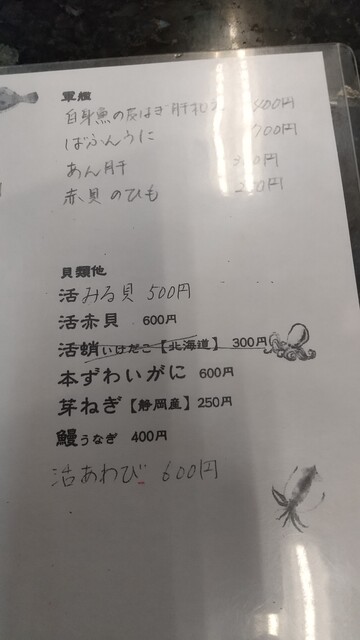 軍艦
白身魚の皮はぎ 肝和え 400円
ばふんうに 700円
あん肝 円
赤貝のひも 円
貝類他
活みる貝 500円
活赤貝 600円
活蛸いけだこ【北海道】 300円
本ずわいがに 600円
芽ねぎ【静岡産】250円
鰻うなぎ 400円
活あわび 600円